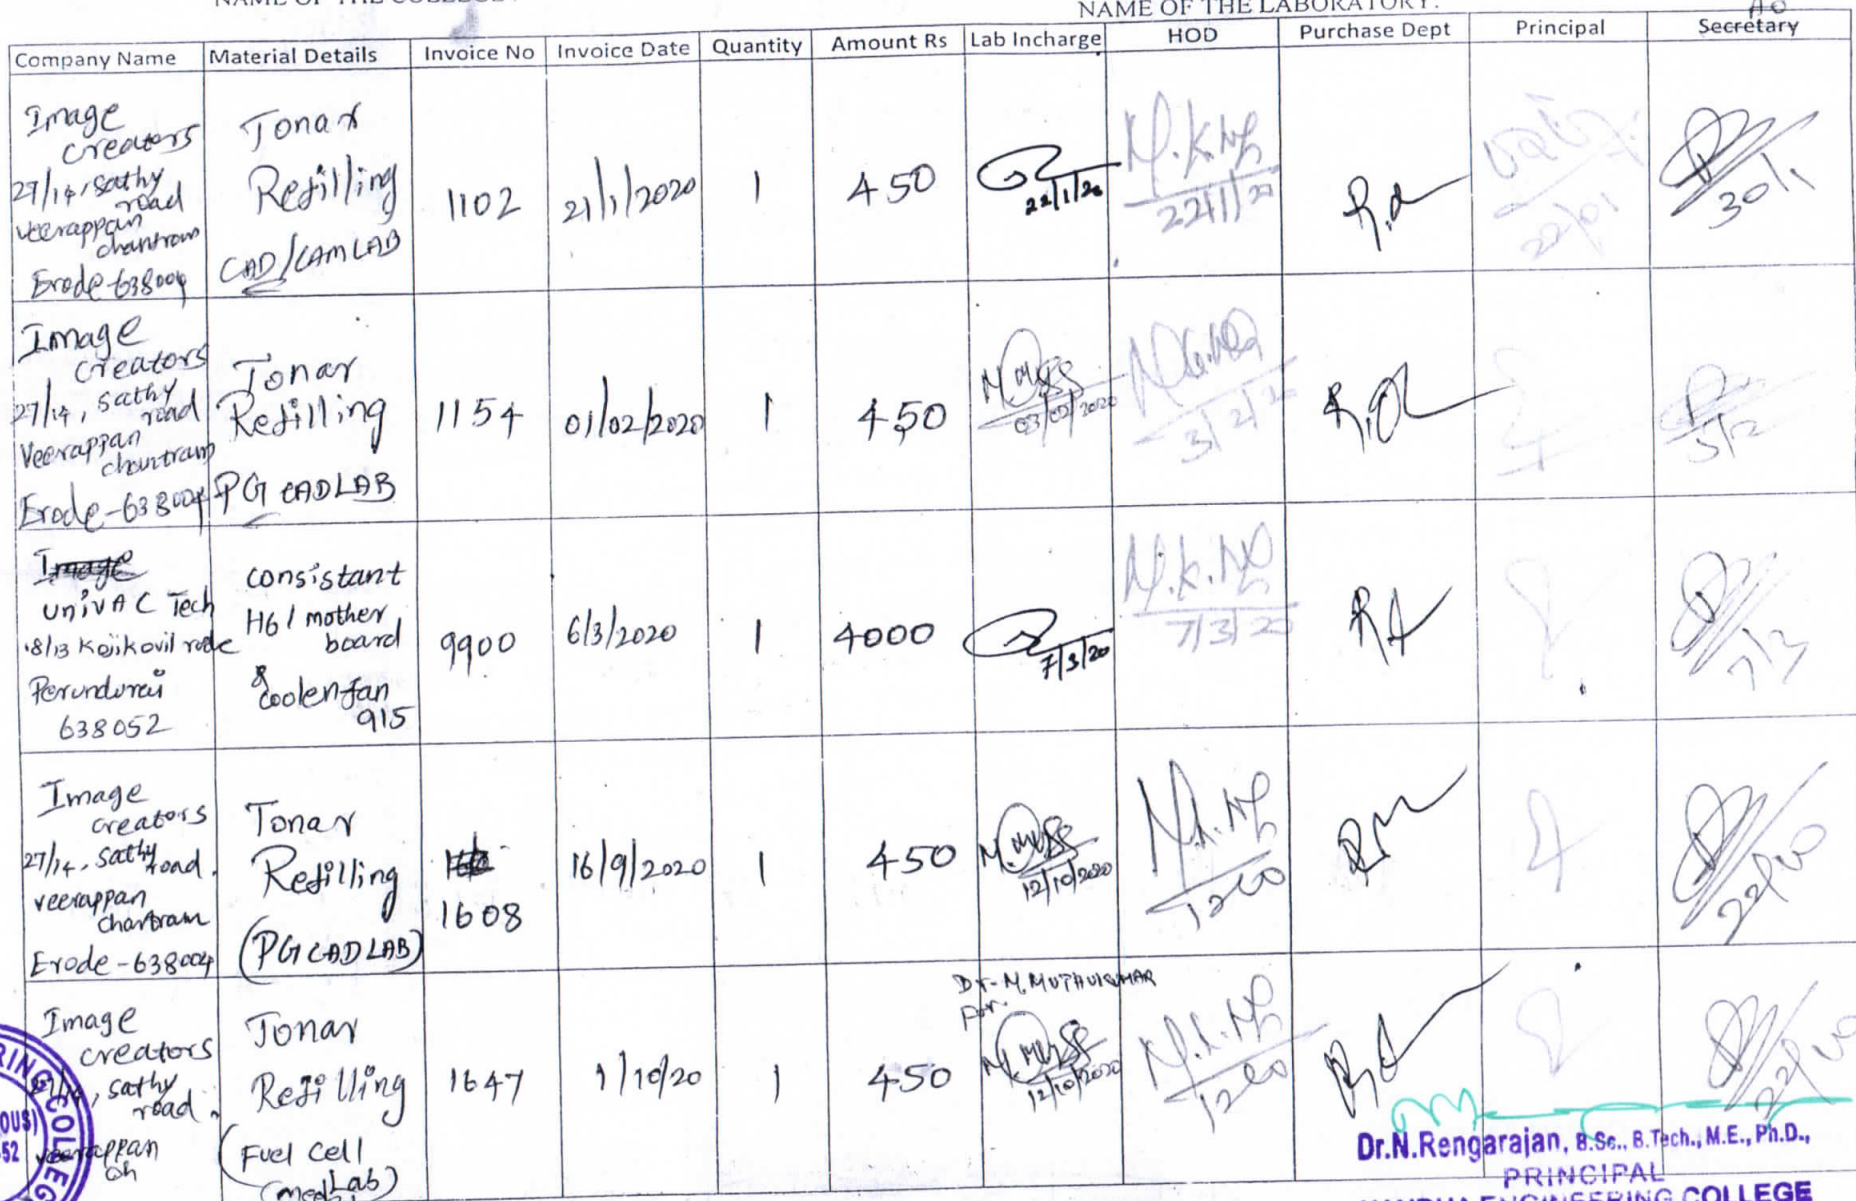 NAME OF THE LABORATORY:
Company Name Material Details Invoice No Invoice Date Quantity Amount Rs Lab Incharge HOD Purchase Dept Principal Secretary
AO
Image
creators
27/14, Sathy
road
veerappan
chantram
Erode-638004
Tonar
Refilling
CAD/CAM LAB
1102
21/1/2020
1
450
22/1/20
M.K.
22/1/20
22/01
30/1
Image
creators
27/14, Sathy
road
Veerappan
chantram
Erode-638004
Tonar
Refilling
PG CAD LAB
1154
01/02/2020
1
450
03/02/2020
3/2/20
5/2
Image
UnivAC Tech
18/13 Kojikovil rode
Perundurai
638052
consistant
H61 mother
board
&
coolenfan
915
9900
6/3/2020
1
4000
7/3/20
7/3/20
7/3
Image
creators
27/14, Sathy
road.
veerappan
chartram
Erode-638004
Tonar
Refilling
(PG CAD LAB)
1608
16/9/2020
1
450
12/10/2020
22/10
Image
creators
27/14, Sathy
road.
veerappan
ch
Tonar
Refilling
(Fuel Cell
Lab)
1647
1/10/20
1
450
Dr. M. MUTHUKUMAR
For.
12/10/2020
22/10
RING COLLEG
OUS)
52
Dr.N.Rengarajan, B.Sc., B.Tech., M.E., Ph.D.,
PRINCIPAL
ENGINEERING COLLEGE